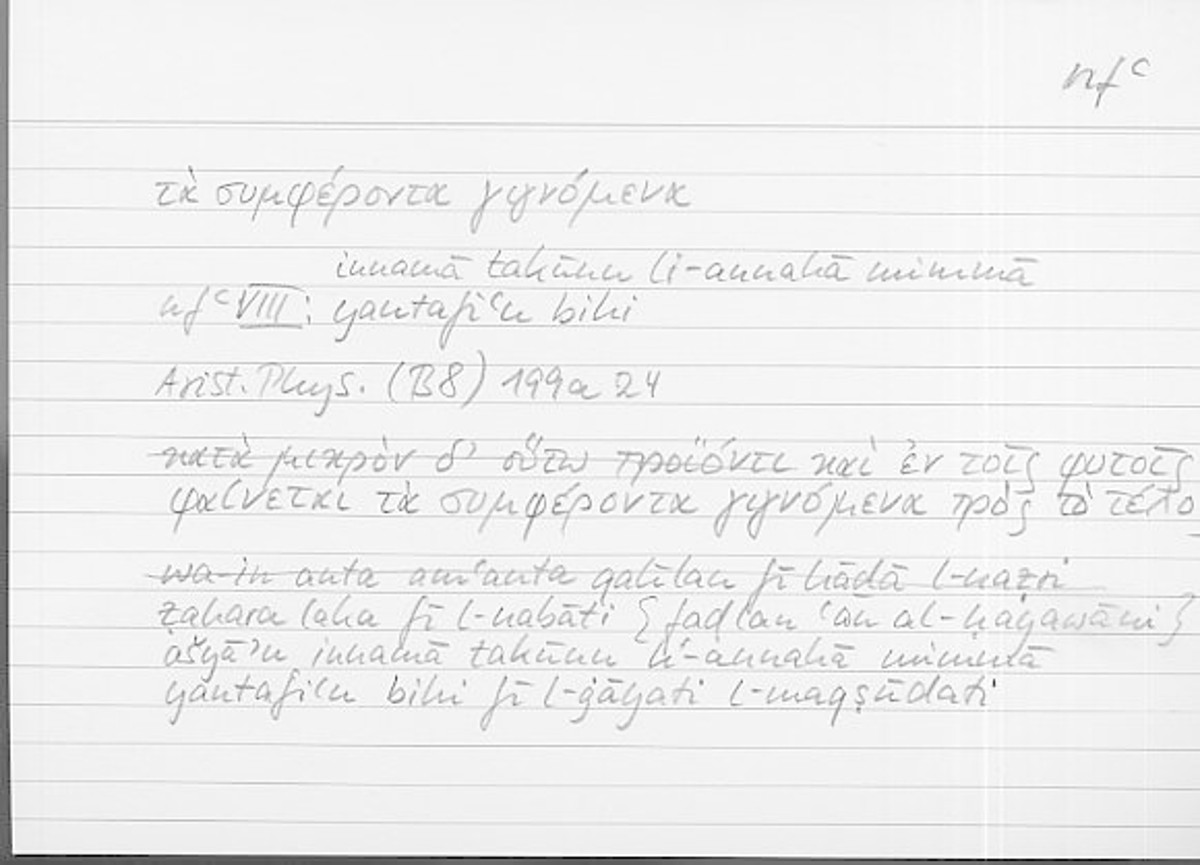 nfᶜ
τὰ συμφέροντα γιγνόμενα
innamā takūnu li-annahā mimmā
nfᶜ VIII: yantafiʿu bihi
Arist. Phys. (B8) 199a 24
κατὰ μικρὸν δ' οὕτω προϊόντι καὶ ἐν τοῖς φυτοῖς
φαίνεται τὰ συμφέροντα γιγνόμενα πρὸς τὸ τέλο
wa-in anta amʿanta qalīlan fī hāḏā l-naẓri
ẓahara laka fī l-nabāti {faḍlan ʿan al-ḥayawāni}
ašyāʾu innamā takūnu li-annahā mimmā
yantafiʿu bihi fī l-ġāyati l-maqṣūdati